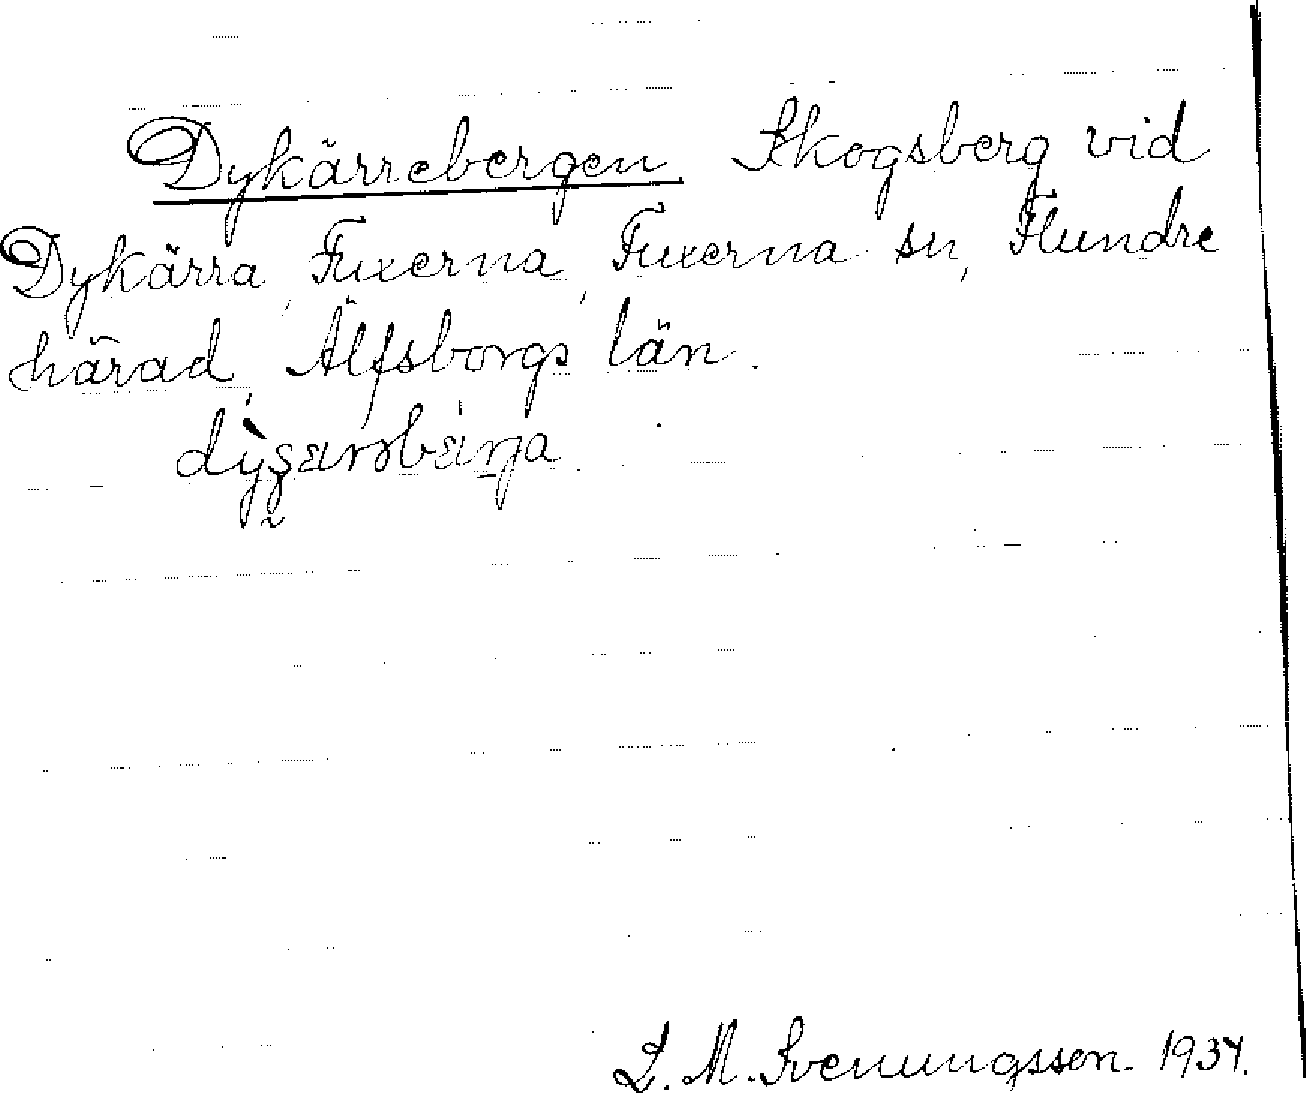 Dykärrebergen Skogsberg vid
Dykärra, Fuxerna, Fuxerna sn, Flundre
härad, Älfsborgs län.
L. M. Svenungsson. 1934.